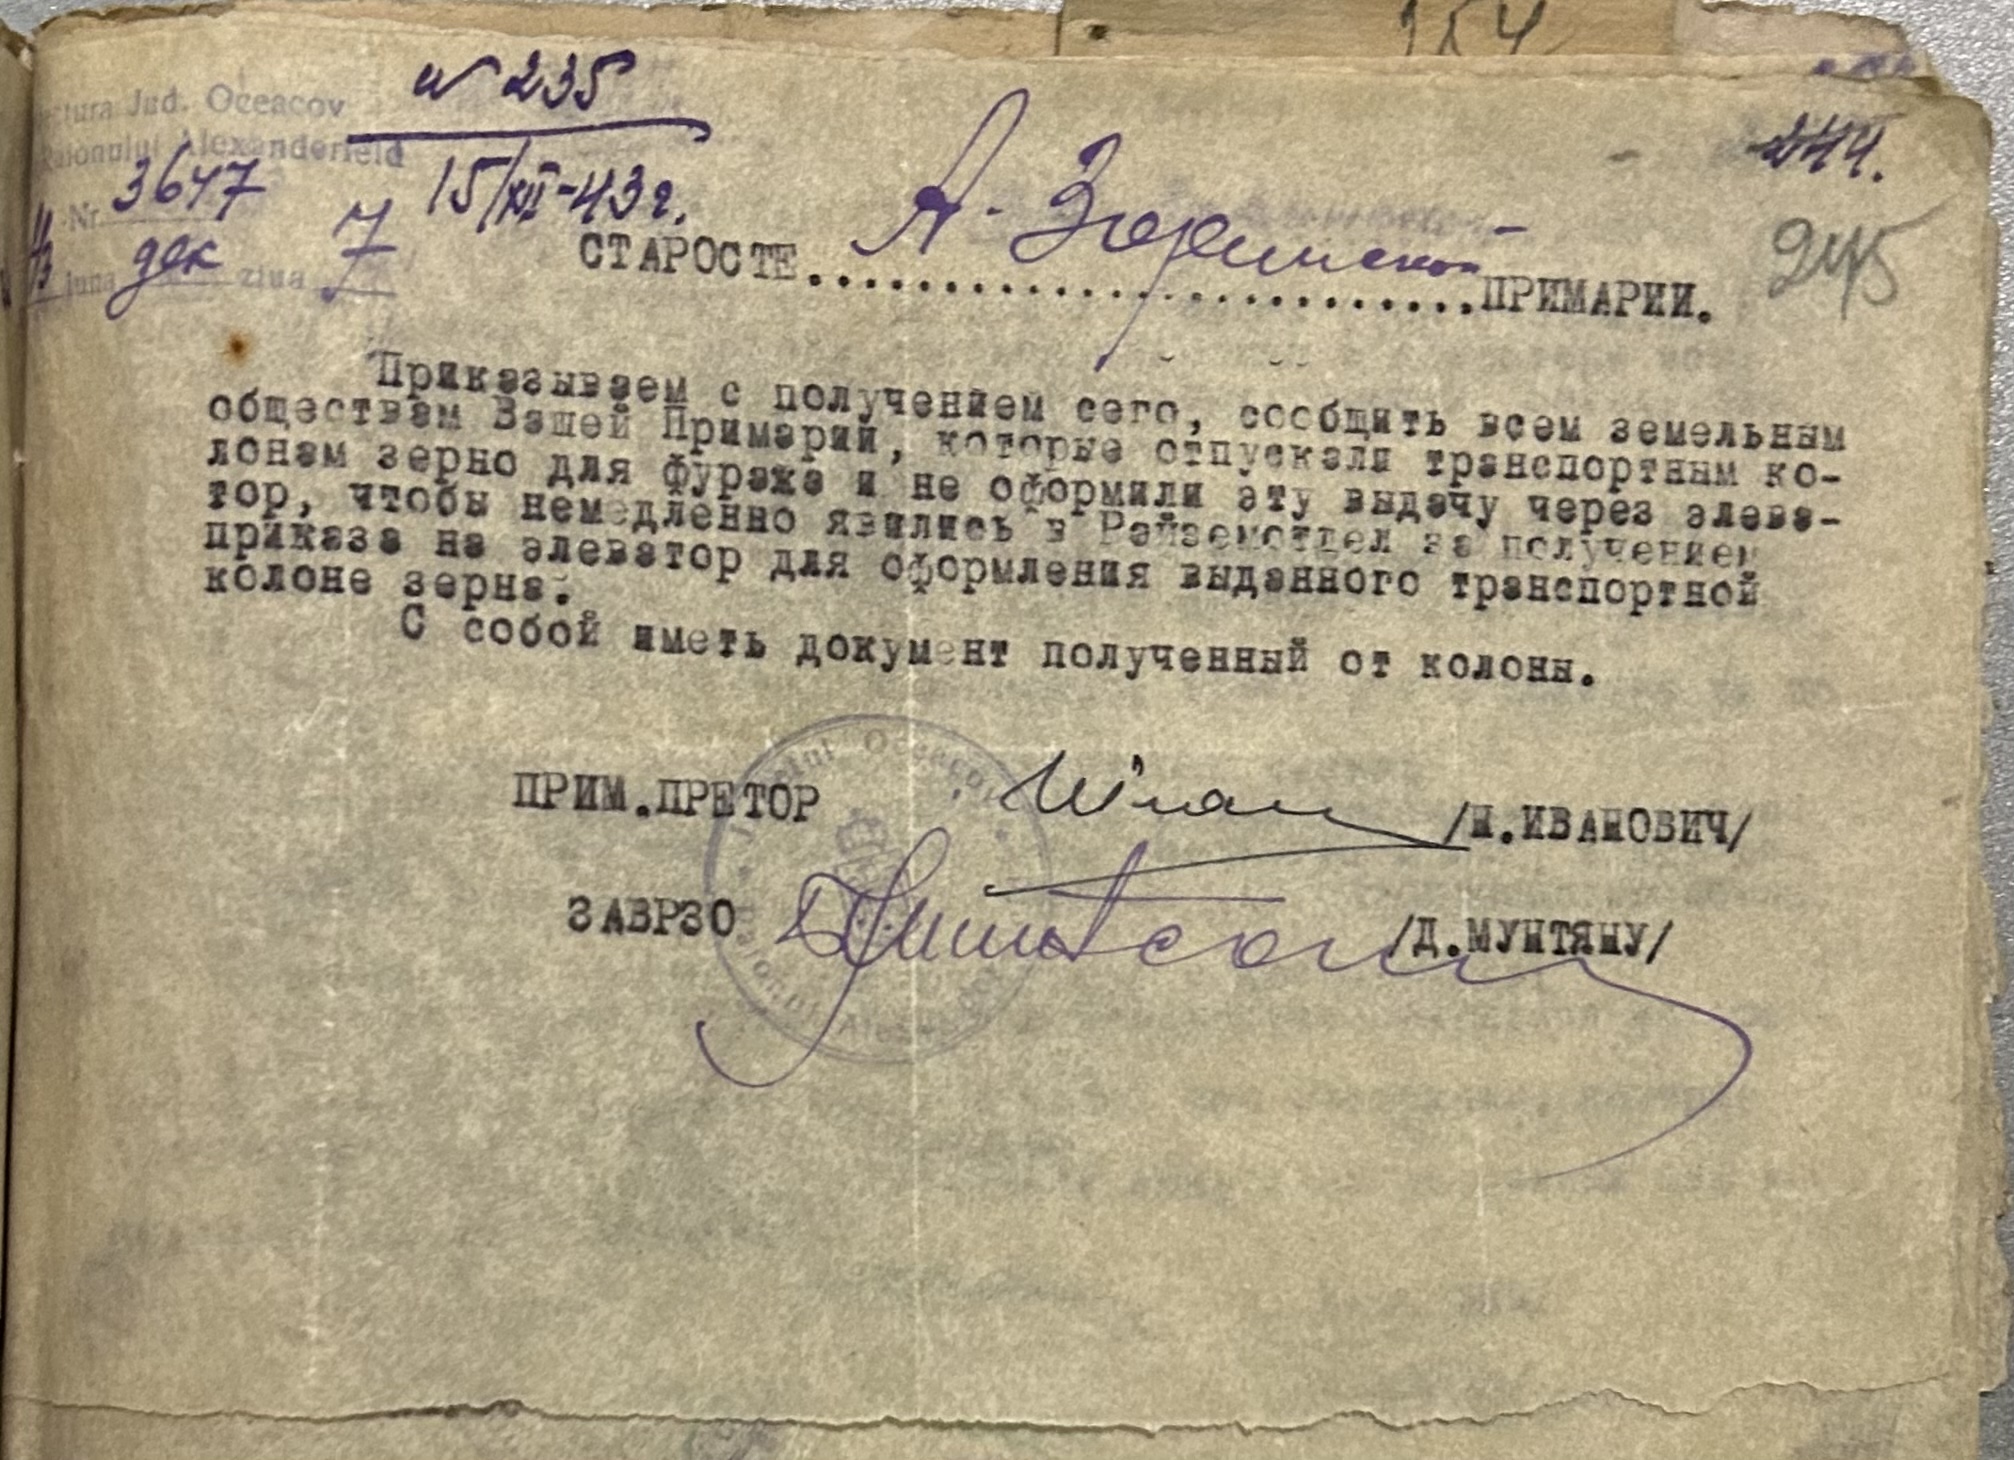 154
№ 235
15/XII-43г.
Jud. Oceacov
Raionului Alexanderfeld
Nr. 3647
luna дек ziua 7
244.
245
СТАРОСТЕ А. ПРИМАРИИ.
Приказываем с получением сего, сообщить всем земельным
обществам Вашей Примарий, которые отпускали транспортным ко-
лонам зерно для фуража и не оформили эту выдачу через элева-
тор, чтобы немедленно явились в Райземотдел за получением
приказа на элеватор для оформления выданного транспортной
колоне зерна.
С собой иметь документ полученный от колоны.
ПРИМ.ПРЕТОР /Н.ИВАНОВИЧ/
ЗАВРЗО /Д.МУНТЯНУ/
Oceacov